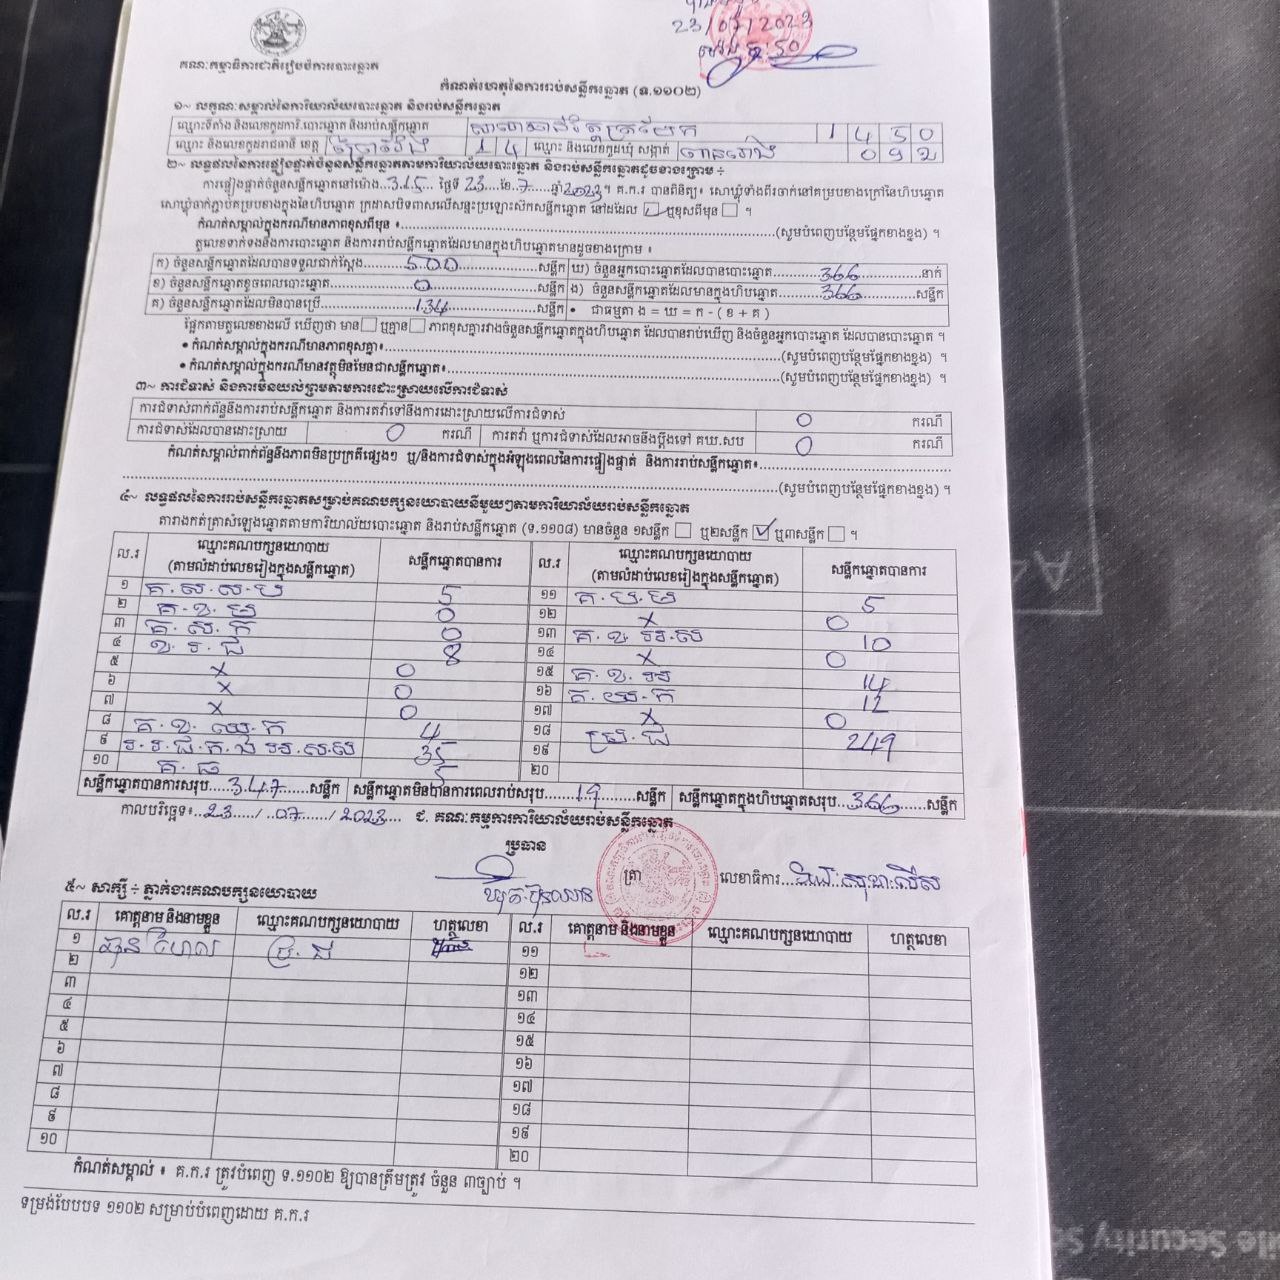 23/07/2023
គណៈកម្មាធិការជាតិរៀបចំការបោះឆ្នោត
កំណត់ហេតុនៃការរាប់សន្លឹកឆ្នោត (ទ.១១០២)
១~ លក្ខណៈសម្គាល់នៃការិយាល័យបោះឆ្នោត និងរាប់សន្លឹកឆ្នោត
ឈ្មោះទីតាំង និងលេខកូដការិ.បោះឆ្នោត និងរាប់សន្លឹកឆ្នោត 1 4 5 0
ឈ្មោះ និងលេខកូដរាជធានី ខេត្ត ព្រៃវែង 1 4 ឈ្មោះ និងលេខកូដឃុំ សង្កាត់
២~ លទ្ធផលនៃការផ្ទៀងផ្ទាត់ចំនួនសន្លឹកឆ្នោតតាមការិយាល័យបោះឆ្នោត និងរាប់សន្លឹកឆ្នោតដូចខាងក្រោម ÷
ការផ្ទៀងផ្ទាត់ចំនួនសន្លឹកឆ្នោតនៅម៉ោង..3.15... ថ្ងៃទី 23....ខែ.7......ឆ្នាំ2023។ គ.ក.រ បានពិនិត្យ៖ សោឃ្លុំទាំងពីរចាក់នៅគម្របខាងក្រៅនៃហិបឆ្នោត
សោឃ្លុំចាក់ភ្ជាប់គម្របខាងក្នុងនៃហិបឆ្នោត ក្រដាសបិទពាសលើសន្ទះប្រឡោះស៊កសន្លឹកឆ្នោត នៅដដែល ☑ ឬខុសពីមុន ☐ ។
កំណត់សម្គាល់ក្នុងករណីមានភាពខុសពីមុន ៖..........(សូមបំពេញបន្ថែមផ្នែកខាងខ្នង) ។
តួលេខទាក់ទងនឹងការបោះឆ្នោត និងការរាប់សន្លឹកឆ្នោតដែលមានក្នុងហិបឆ្នោតមានដូចខាងក្រោម ៖
ក) ចំនួនសន្លឹកឆ្នោតដែលបានទទួលជាក់ស្តែង..........500..........សន្លឹក ឃ) ចំនួនអ្នកបោះឆ្នោតដែលបានបោះឆ្នោត..........366..........នាក់
ខ) ចំនួនសន្លឹកឆ្នោតខូចពេលបោះឆ្នោត..........0..........សន្លឹក ង) ចំនួនសន្លឹកឆ្នោតដែលមានក្នុងហិបឆ្នោត..........366..........សន្លឹក
គ) ចំនួនសន្លឹកឆ្នោតដែលមិនបានប្រើ..........134..........សន្លឹក • ជាធម្មតា ង = ឃ = ក - ( ខ + គ )
ផ្អែកតាមតួលេខខាងលើ ឃើញថា មាន ☐ ឬគ្មាន ☐ ភាពខុសគ្នារវាងចំនួនសន្លឹកឆ្នោតក្នុងហិបឆ្នោត ដែលបានរាប់ឃើញ និងចំនួនអ្នកបោះឆ្នោត ដែលបានបោះឆ្នោត ។
• កំណត់សម្គាល់ក្នុងករណីមានភាពខុសគ្នា៖..........(សូមបំពេញបន្ថែមផ្នែកខាងខ្នង) ។
• កំណត់សម្គាល់ក្នុងករណីមានវត្ថុមិនមែនជាសន្លឹកឆ្នោត៖..........(សូមបំពេញបន្ថែមផ្នែកខាងខ្នង) ។
៣~ ការជំទាស់ និងការមិនយល់ព្រមតាមការដោះស្រាយលើការជំទាស់
ការជំទាស់ពាក់ព័ន្ធនឹងការរាប់សន្លឹកឆ្នោត និងការតវ៉ាទៅនឹងការដោះស្រាយលើការជំទាស់ 0 ករណី
ការជំទាស់ដែលបានដោះស្រាយ 0 ករណី ការតវ៉ា ឬការជំទាស់ដែលអាចនឹងប្តឹងទៅ គឃ.សប 0 ករណី
កំណត់សម្គាល់ពាក់ព័ន្ធនឹងភាពមិនប្រក្រតីផ្សេងៗ ឬ/និងការជំទាស់ក្នុងអំឡុងពេលនៃការផ្ទៀងផ្ទាត់ និងការរាប់សន្លឹកឆ្នោត៖..........
..........(សូមបំពេញបន្ថែមផ្នែកខាងខ្នង) ។
៤~ លទ្ធផលនៃការរាប់សន្លឹកឆ្នោតសម្រាប់គណបក្សនយោបាយនីមួយៗតាមការិយាល័យរាប់សន្លឹកឆ្នោត
តារាងកត់ត្រាសំឡេងឆ្នោតតាមការិយាល័យបោះឆ្នោត និងរាប់សន្លឹកឆ្នោត (ទ.១១០៨) មានចំនួន ១សន្លឹក ☐ ឬ២សន្លឹក ☑ ឬ៣សន្លឹក ☐ ។
ល.រ ឈ្មោះគណបក្សនយោបាយ (តាមលំដាប់លេខរៀងក្នុងសន្លឹកឆ្នោត) សន្លឹកឆ្នោតបានការ ល.រ ឈ្មោះគណបក្សនយោបាយ (តាមលំដាប់លេខរៀងក្នុងសន្លឹកឆ្នោត) សន្លឹកឆ្នោតបានការ
១ 5 ១១ 5
២ គ.ខ.ម 0 ១២ x 0
៣ គ.ស.ក 0 ១៣ 10
៤ ខ.រ.ជ 8 ១៤ x 0
៥ x 0 ១៥ 14
៦ x 0 ១៦ 12
៧ x 0 ១៧ x 0
៨ 4 ១៨ ប្រ.ជ 249
៩ 35 ១៩
១០ គ.ធ 5 ២០
សន្លឹកឆ្នោតបានការសរុប.....347......សន្លឹក សន្លឹកឆ្នោតមិនបានការពេលរាប់សរុប.....19........សន្លឹក សន្លឹកឆ្នោតក្នុងហិបឆ្នោតសរុប..366.....សន្លឹក
កាលបរិច្ឆេទ៖..23...../..07....../ 2023.... ជ. គណៈកម្មការការិយាល័យរាប់សន្លឹកឆ្នោត
ប្រធាន
ត្រា លេខាធិការ...
៥~ សាក្សី ÷ ភ្នាក់ងារគណបក្សនយោបាយ
ល.រ គោត្តនាម និងនាមខ្លួន ឈ្មោះគណបក្សនយោបាយ ហត្ថលេខា ល.រ គោត្តនាម និងនាមខ្លួន ឈ្មោះគណបក្សនយោបាយ ហត្ថលេខា
១ ប្រ.ជ ១១
២ ១២
៣ ១៣
៤ ១៤
៥ ១៥
៦ ១៦
៧ ១៧
៨ ១៨
៩ ១៩
១០ ២០
កំណត់សម្គាល់ ៖ គ.ក.រ ត្រូវបំពេញ ទ.១១០២ ឱ្យបានត្រឹមត្រូវ ចំនួន ៣ច្បាប់ ។
ទម្រង់បែបបទ ១១០២ សម្រាប់បំពេញដោយ គ.ក.រ